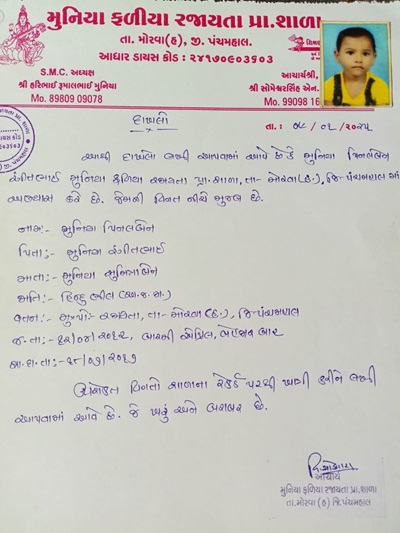 મુનિયા ફળીયા રજાયતા પ્રા.શાળા
તા. મોરવા(હ), જી. પંચમહાલ.
આધાર ડાયસ કોડ : ૨૪૧૭૦૯૦૩૬૦૩
S.M.C. અધ્યક્ષ
શ્રી હરિભાઈ રૂમાલભાઈ મુનિયા
Mo. 89809 09078
આચાર્યશ્રી,
શ્રી સોમેશ્વરસિંહ એન.
Mo. 99098 16
દાખલો
તા. :
આથી દાખલો લખી આપવામાં આવે છે કે મુનિયા પિનલબેન
રંગીતભાઈ મુનિયા ફળિયા રજાયતા પ્રા.શાળા, તા- મોરવા(હ.), જિ-પંચમહાલ માં
અભ્યાસ કરે છે. જેમની વિગત નીચે મુજબ છે.
નામ:- મુનિયા પિનલબેન
પિતા:- મુનિયા રંગીતભાઈ
માતા:- મુનિયા સુમિત્રાબેન
જાતિ:- હિન્દુ ભીલ (અ.જ.જા.)
વતન:- મુ.પો- રજાયતા, તા- મોરવા(હ.), જિ-પંચમહાલ
જ. તા:- ૧૨/૦૪/૨૦૧૨, બારમી એપ્રિલ, બેહજાર બાર
ઉપરોક્ત વિગતો શાળાના રેકર્ડ પરથી ખાત્રી કરીને લખી
આપવામાં આવે છે. જે ખરું અને બરાબર છે.
આચાર્ય
મુનિયા ફળીયા રજાયતા પ્રા.શાળા
તા.મોરવા (હ) જિ.પંચમહાલ